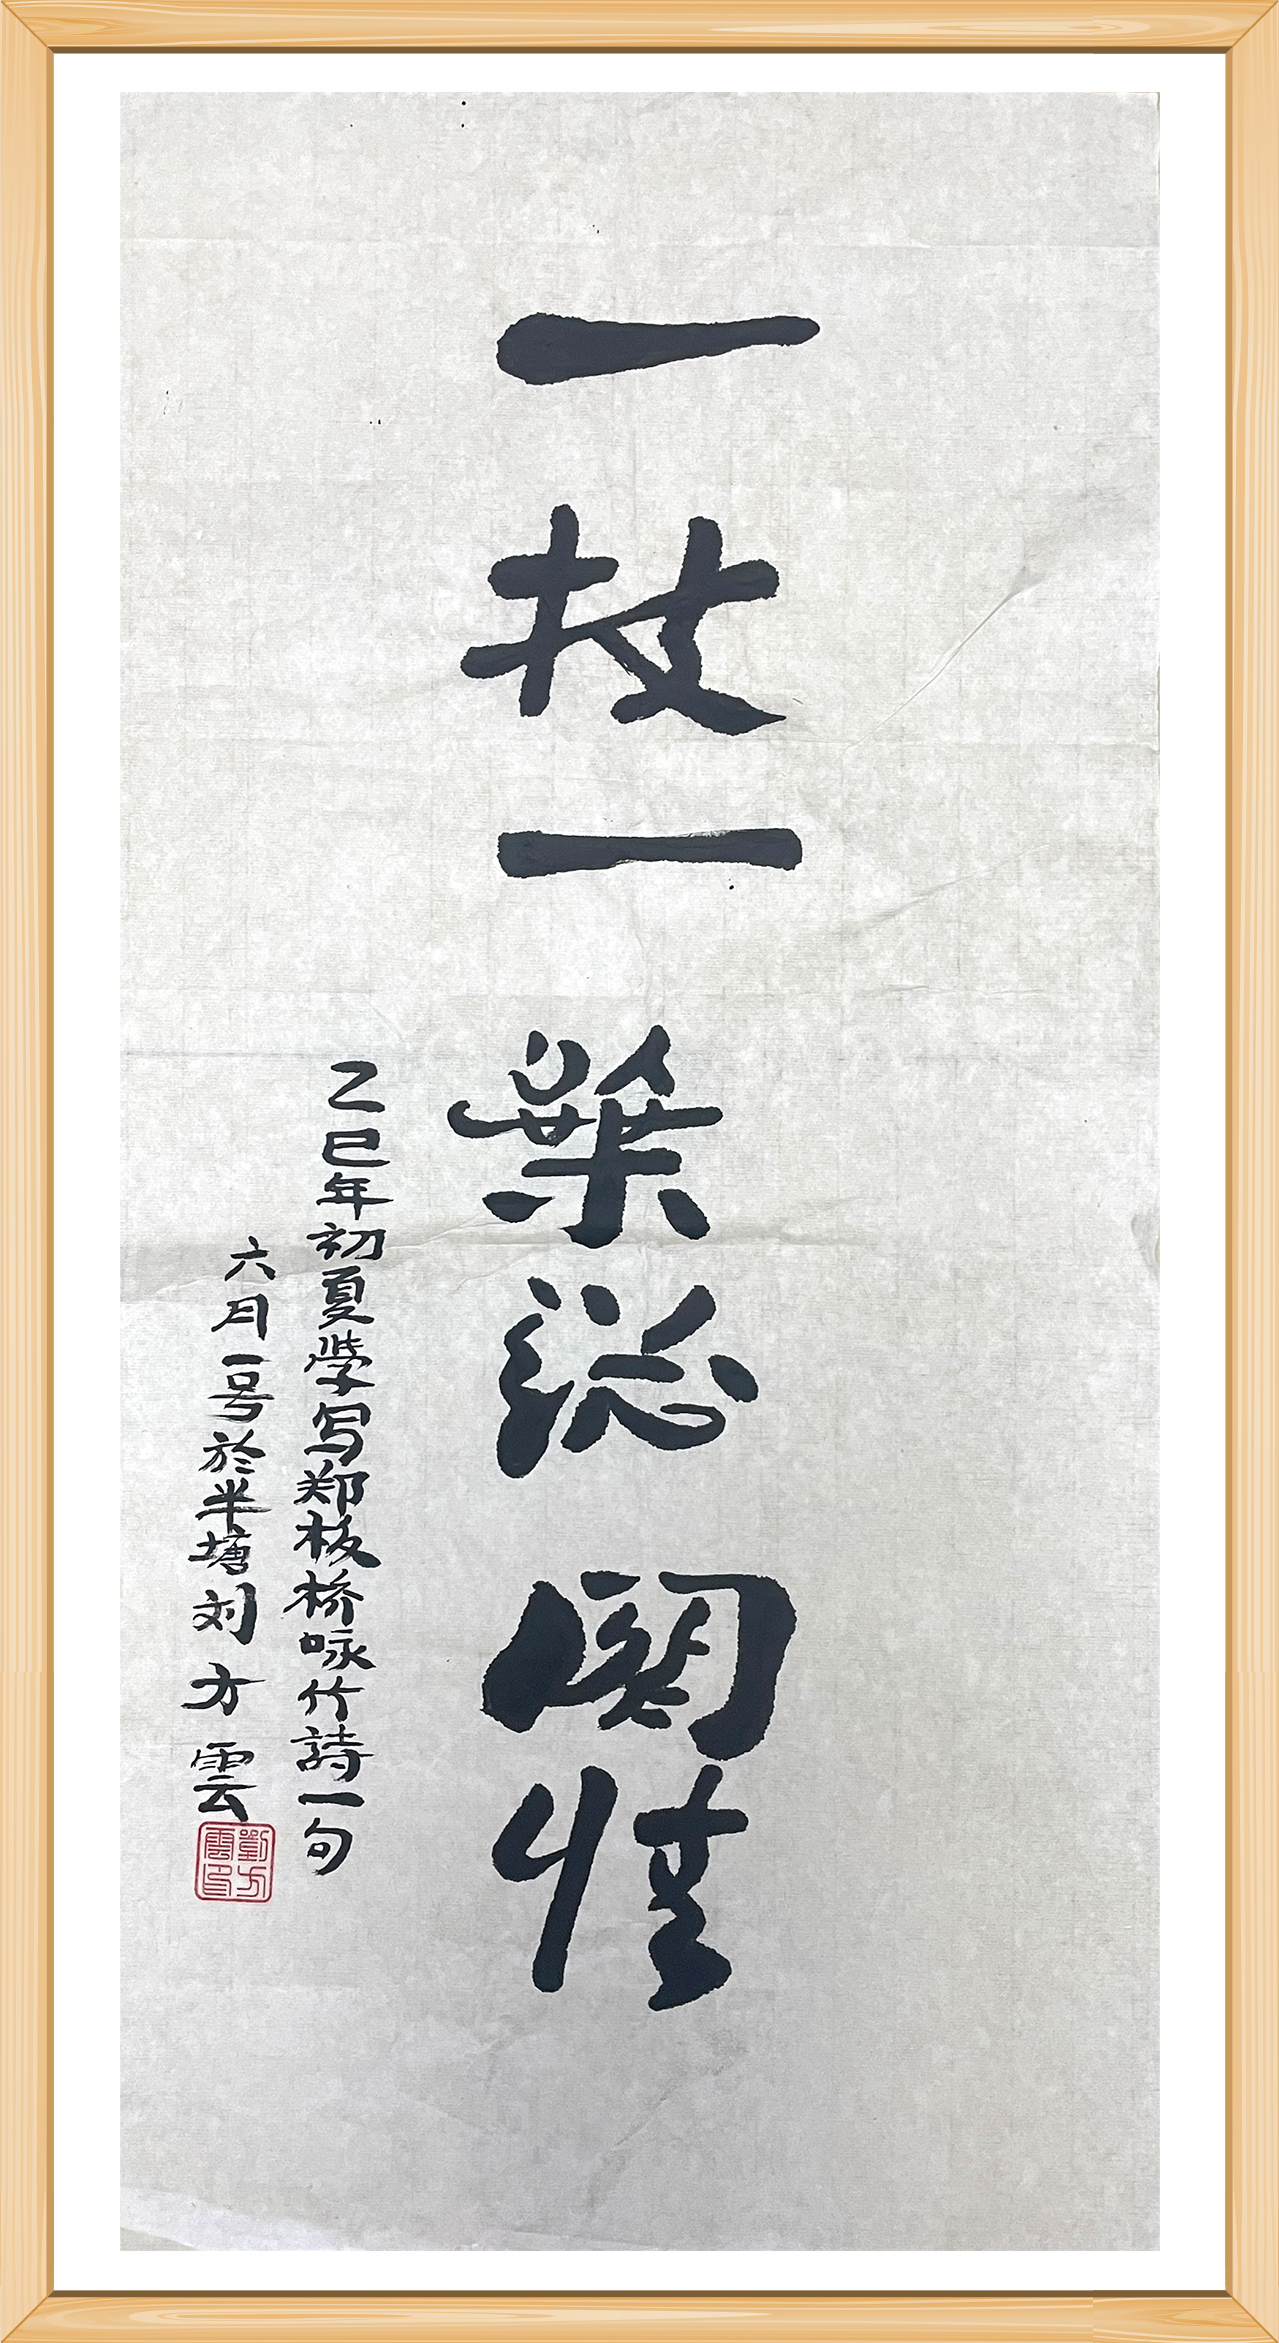 一枝一葉總關情
乙巳年初夏學写郑板桥咏竹詩一句
六月一号於半塘刘方雲
劉方雲印